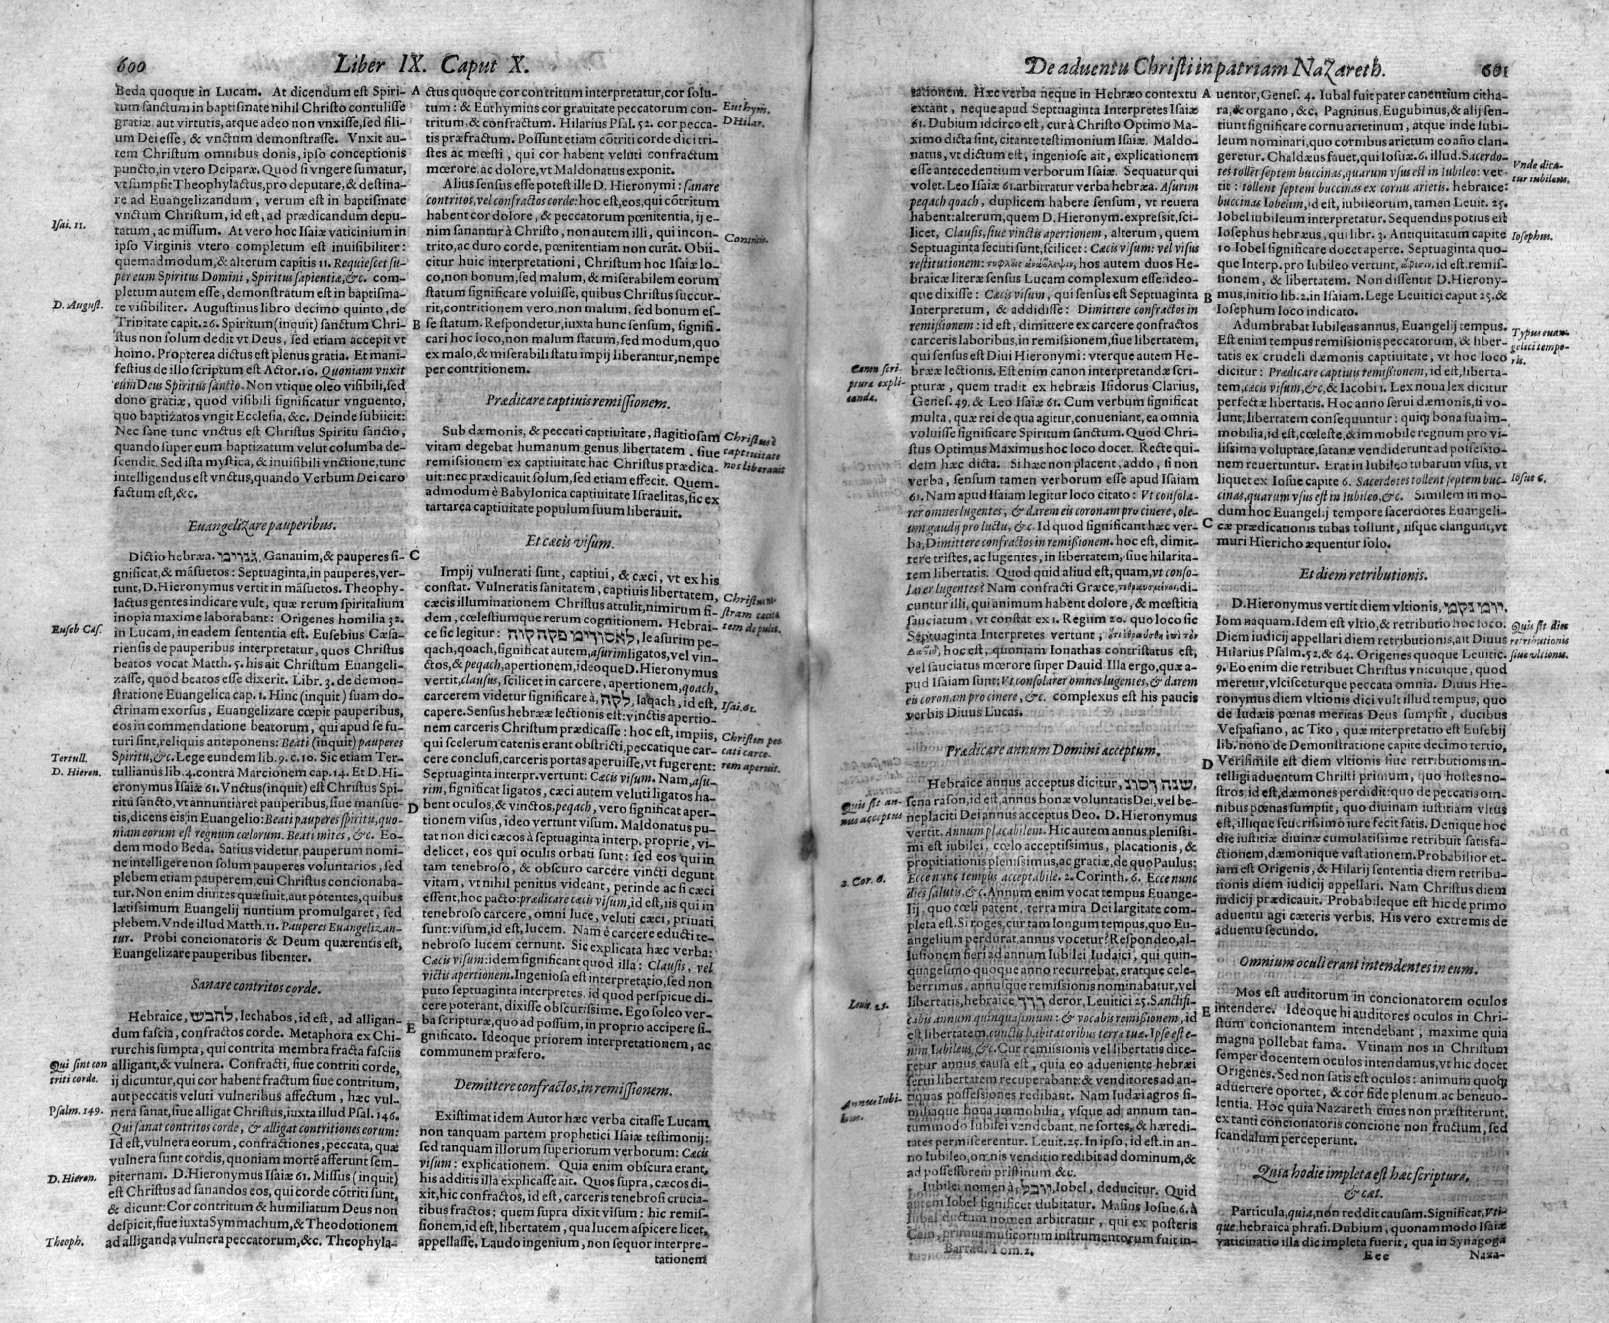 600
Liber IX. Caput X.
Beda quoque in Lucam. At dicendum est Spiri-
tum sanctum in baptismate nihil Christo contulisse
gratiæ aut virtutis, atque adeo non vnxisse, sed fili-
um Dei esse, & vnctum demonstrasse. Vnxit au-
tem Christum omnibus donis, ipso conceptionis
puncto, in vtero Deiparæ. Quod si vngere sumatur,
vt sumpsit Theophylactus, pro deputare, & destina-
re ad Euangelizandum, verum est in baptismate
vnctum Christum, id est, ad prædicandum depu-
tatum, ac missum. At vero hoc Isaiæ vaticinium in
ipso Virginis vtero completum est inuisibiliter:
quemadmodum, & alterum capitis 11. Requiescet su-
per eum Spiritus Domini, Spiritus sapientiæ, &c. com-
pletum autem esse, demonstratum est in baptisma-
te visibiliter. Augustinus libro decimo quinto, de
Trinitate capit. 26. Spiritum (inquit) sanctum Chri-
stus non solum dedit vt Deus, sed etiam accepit vt
homo. Propterea dictus est plenus gratia. Et mani-
festius de illo scriptum est Actor. 10. Quoniam vnxit
eum Deus Spiritu sancto. Non vtique oleo visibili, sed
dono gratiæ, quod visibili significatur vnguento,
quo baptizatos vngit Ecclesia, &c. Deinde subiicit:
Nec sane tunc vnctus est Christus Spiritu sancto,
quando super eum baptizatum velut columba de-
scendit. Sed ista mystica, & inuisibili vnctione, tunc
intelligendus est vnctus, quando Verbum Dei caro
factum est, &c.
Euangelizare pauperibus.
Dictio hebræa. Ganauim, & pauperes si-
gnificat, & mãsuetos: Septuaginta, in pauperes, ver-
tunt, D. Hieronymus vertit in mãsuetos. Theophy-
lactus gentes indicare vult, quæ rerum spiritalium
inopia maxime laborabant: Origenes homilia 32.
in Lucam, in eadem sententia est. Eusebius Cæsa-
riensis de pauperibus interpretatur, quos Christus
beatos vocat Matth. 5. his ait Christum Euangeli-
zasse, quod beatos esse dixerit. Libr. 3. de demon-
stratione Euangelica cap. 1. Hinc (inquit) suam do-
ctrinam exorsus, Euangelizare cœpit pauperibus,
eos in commendatione beatorum, qui apud se fu-
turi sint, reliquis anteponens: Beati (inquit) pauperes
Spiritu, &c. Lege eundem lib. 9. c. 10. Sic etiam Ter-
tullianus lib. 4. contra Marcionem cap. 14. Et D. Hi-
eronymus Isaiæ 61. Vnctus (inquit) est Christus Spi-
ritu sancto, vt annuntiaret pauperibus, siue mansue-
tis, dicens eis in Euangelio: Beati pauperes spiritu, quo-
niam eorum est regnum cœlorum. Beati mites, &c. Eo-
dem modo Beda. Satius videtur, pauperum nomi-
ne intelligere non solum pauperes voluntarios, sed
plebem etiam pauperem, cui Christus concionaba-
tur. Non enim diuites quæsiuit, aut potentes, quibus
lætissimum Euangelij nuntium promulgaret, sed
plebem. Vnde illud Matth. 11. Pauperes Euangelizan-
tur. Probi concionatoris & Deum quærentis est,
Euangelizare pauperibus libenter.
Sanare contritos corde.
Hebraice, להבש, lechabos, id est, ad alligan-
dum fascia, confractos corde. Metaphora ex Chi-
rurchis sumpta, qui contrita membra fracta fasciis
alligant, & vulnera. Confracti, siue contriti corde,
ij dicuntur, qui cor habent fractum siue contritum,
aut peccatis veluti vulneribus affectum, hæc vul-
nera sanat, siue alligat Christus, iuxta illud Psal. 146.
Qui sanat contritos corde, & alligat contritiones eorum:
Id est, vulnera eorum, confractiones, peccata, quæ
vulnera sunt cordis, quoniam mortẽ afferunt sem-
piternam. D. Hieronymus Isaiæ 61. Missus (inquit)
est Christus ad sanandos eos, qui corde cõtriti sunt,
& dicunt: Cor contritum & humiliatum Deus non
despicit, siue iuxta Symmachum, & Theodotionem
ad alliganda vulnera peccatorum, &c. Theophyla-
Isai. 11.
D. August.
Euseb Cæs.
Tertull.
D. Hieron.
Qui sint con
triti corde.
Psalm. 149.
D. Hieron.
Theoph.
A
B
C
D
E
ctus quoque cor contritum interpretatur, cor solu-
tum: & Euthymius cor grauitate peccatorum con-
tritum & confractum. Hilarius Psal. 52. cor pecca-
tis præfractum. Possunt etiam cõtriti corde dici tri-
stes ac mœsti, qui cor habent veluti confractum
mœrore ac dolore, vt Maldonatus exponit.
Alius sensus esse potest ille D. Hieronymi: sanare
contritos, vel confractos corde: hoc est, eos, qui cõtritum
habent cor dolore, & peccatorum pœnitentia, ij e-
nim sanantur à Christo, non autem illi, qui incon-
trito, ac duro corde, pœnitentiam non curãt. Obii-
citur huic interpretationi, Christum hoc Isaiæ lo-
co, non bonum, sed malum, & miserabilem eorum
statum significare voluisse, quibus Christus succur-
rit, contritionem vero, non malum, sed bonum es-
se statum. Respondetur, iuxta hunc sensum, signifi-
cari hoc loco, non malum statum, sed modum, quo
ex malo, & miserabili statu impij liberantur, nempe
per contritionem.
Prædicare captiuis remissionem.
Sub dæmonis, & peccati captiuitate, flagitiosam
vitam degebat humanum genus, libertatem, siue
remissionem ex captiuitate hac Christus prædica-
uit: nec prædicauit solum, sed etiam effecit. Quem-
admodum è Babylonica captiuitate Israelitas, sic ex
tartarea captiuitate populum suum liberauit.
Et cæcis visum.
Impij vulnerati sunt, captiui, & cæci, vt ex his
constat. Vulneratis sanitatem, captiuis libertatem,
cæcis illuminationem Christus attulit, nimirum fi-
dem, cœlestiumque rerum cognitionem. Hebrai-
ce sic legitur: לאסורימ פקה קוה, le asurim pe-
qach, qoach, significat autem, asurim ligatos, vel vin-
ctos, & peqach, apertionem, ideoque D. Hieronymus
vertit, clausus, scilicet in carcere, apertionem, qoach,
carcerem videtur significare à, לקה, laqach, id est,
capere. Sensus hebrææ lectionis est: vinctis apertio-
nem carceris Christum prædicasse: hoc est, impiis,
qui scelerum catenis erant obstricti, peccatique car-
cere conclusi, carceris portas aperuisse, vt fugerent:
Septuaginta interpr. vertunt: Cæcis visum. Nam, asu-
rim, significat ligatos, cæci autem veluti ligatos ha-
bent oculos, & vinctos, peqach, vero significat aper-
tionem visus, ideo vertunt visum. Maldonatus pu-
tat non dici cæcos à septuaginta interp. proprie, vi-
delicet, eos qui oculis orbati sunt: sed eos qui in
tam tenebroso, & obscuro carcere vincti degunt
vitam, vt nihil penitus videant, perinde ac si cæci
essent, hoc pacto: prædicare cæcis visum, id est, iis qui in
tenebroso carcere, omni luce, veluti cæci, priuati
sunt: visum, id est, lucem. Nam è carcere educti te-
nebroso lucem cernunt. Sic explicata hæc verba:
Cæcis visum: idem significant quod illa: Clausis, vel
victis apertionem. Ingeniosa est interpretatio, sed non
puto septuaginta interpretes, id quod perspicue di-
cere poterant, dixisse obscurissime. Ego soleo ver-
ba scripturæ, quo ad possum, in proprio accipere si-
gnificato. Ideoque priorem interpretationem, ac
communem præfero.
Demittere confractos, in remissionem.
Existimat idem Autor hæc verba citasse Lucam
non tanquam partem prophetici Isaiæ testimonij:
sed tanquam illorum superiorum verborum: Cæcis
visum: explicationem. Quia enim obscura erant,
his additis illa explicasse ait. Quos supra, cæcos di-
xit, hic confractos, id est, carceris tenebrosi crucia-
tibus fractos: quem supra dixit visum: hic remis-
sionem, id est, libertatem, qua lucem aspicere licet,
appellasse. Laudo ingenium, non sequor interpre-
tationem
Euthym.
D Hilar.
Commin.
Christus è
captiuitate
nos liberauit
Isai. 61.
Christus pec
cati carce-
rem aperuit.
De aduentu Christi in patriam Nazareth.
601
tationem. Hæc verba neque in Hebræo contextu
extant, neque apud Septuaginta Interpretes Isaiæ
61. Dubium idcirco est, cur à Christo Optimo Ma-
ximo dicta sint, citante testimonium Isaiæ. Maldo-
natus, vt dictum est, ingeniose ait, explicationem
esse antecedentium verborum Isaiæ. Sequatur qui
volet. Leo Isaiæ 61. arbitratur verba hebræa. Asurim
peqach qoach, duplicem habere sensum, vt reuera
habent: alterum, quem D. Hieronym. expressit, sci-
licet, Clausis, siue vinctis apertionem, alterum, quem
Septuaginta secuti sunt, scilicet: Cæcis visum: vel visus
restitutionem: τυφλοῖς ἀνάβλεψιν, hos autem duos He-
braicæ literæ sensus Lucam complexum esse: ideo-
que dixisse: Cæcis visum, qui sensus est Septuaginta
Interpretum, & addidisse: Dimittere confractos in
remissionem: id est, dimittere ex carcere confractos
carceris laboribus, in remissionem, siue libertatem,
qui sensus est Diui Hieronymi: vterque autem He-
brææ lectionis. Est enim canon interpretandæ scri-
pturæ, quem tradit ex hebræis Isidorus Clarius,
Genes. 49. & Leo Isaiæ 61. Cum verbum significat
multa, quæ rei de qua agitur, conueniant, ea omnia
voluisse significare Spiritum sanctum. Quod Chri-
stus Optimus Maximus hoc loco docet. Recte qui-
dem hæc dicta. Si hæc non placent, addo, si non
verba, sensum tamen verborum esse apud Isaiam
61. Nam apud Isaiam legitur loco citato: Vt consola-
rer omnes lugentes, & darem eis coronam pro cinere, ole-
um gaudij pro luctu, &c. Id quod significant hæc ver-
ba, Dimittere confractos in remissionem. hoc est, dimit-
tere tristes, ac lugentes, in libertatem, siue hilarita-
tem libertatis. Quod quid aliud est, quam, vt conso-
larer lugentes? Nam confracti Græce, τεθραυσμένοι, di-
cuntur illi, qui animum habent dolore, & mœstitia
sauciatum, vt constat ex 1. Regum 20. quo loco sic
Septuaginta Interpretes vertunt, hoc est, quoniam Ionathas contristatus est,
vel sauciatus mœrore super Dauid Illa ergo, quæ a-
pud Isaiam sunt: Vt consolarer omnes lugentes, & darem
eis coronam pro cinere, &c. complexus est his paucis
verbis Diuus Lucas.
Prædicare annum Domini acceptum.
Hebraice annus acceptus dicitur, שנה רסונ,
sena rason, id est, annus bonæ voluntatis Dei, vel be-
neplaciti Dei annus acceptus Deo. D. Hieronymus
vertit. Annum placabilem. Hic autem annus plenissi-
mi est iubilei, cœlo acceptissimus, placationis, &
propitiationis plenissimus, ac gratiæ, de quo Paulus:
Ecce nunc tempus acceptabile. 2. Corinth. 6. Ecce nunc
dies salutis, &c. Annum enim vocat tempus Euange-
lij, quo cœli patent, terra mira Dei largitate com-
pleta est. Si roges, cur tam longum tempus, quo Eu-
angelium perdurat, annus vocetur? Respondeo, al-
lusionem fieri ad annum Iubilei Iudaici, qui quin-
quagesimo quoque anno recurrebat, eratque cele-
berrimus, annusque remissionis nominabatur, vel
libertatis, hebraice, דרר deror, Leuitici 25. Sanctifi-
cabis annum quinquagesimum: & vocabis remissionem, id
est libertatem, cunctis habitatoribus terræ tuæ. Ipse est e-
nim Iubileus, &c. Cur remissionis vel libertatis dice-
retur annus causa est, quia eo adueniente hebræi
serui libertatem recuperabant: & venditores ad an-
tiquas possessiones redibant. Nam Iudæi agros si-
miliaque bona immobilia, vsque ad annum tan-
tummodo Iubilei vendebant, ne sortes, & hæredi-
tates permiscerentur. Leuit. 25. In ipso, id est, in an-
no Iubileo, omnis venditio redibit ad dominum, &
ad possessorem pristinum &c.
Iubilei nomen à, יובל, Iobel, deducitur. Quid
autem Iobel significet dubitatur. Masius Iosue 6. à
Iubal ductum nomen arbitratur, qui ex posteris
Cain, primus musicorum instrumentorum fuit in-
Barrad. Tom. 2.
Canon scri-
pturæ expli-
candæ.
Quis sit an-
nus acceptus
2. Cor. 6.
Leuit. 25.
Annus Iubi-
læus.
A
B
C
D
E
uentor, Genes. 4. Iubal fuit pater canentium citha-
ra, & organo, &c. Pagninus, Eugubinus, & alij sen-
tiunt significare cornu arietinum, atque inde Iubi-
leum nominari, quo cornibus arietum eo año clan-
geretur. Chaldæus fauet, qui Iosuiæ. 6. illud. Sacerdo-
tes tollet septem buccinas, quarum vsus est in Iubileo: ver-
tit: tollent septem buccinas ex cornu arietis. hebraice:
buccinas Iobelim, id est, iubileorum, tamen Leuit. 25.
Iobel iubileum interpretatur. Sequendus potius est
Iosephus hebræus, qui libr. 3. Antiquitatum capite
10 Iobel significare docet aperte. Septuaginta quo-
que Interp. pro Iubileo vertunt, ἄφεσιν, id est, remis-
sionem, & libertatem. Non dissentit D. Hierony-
mus, initio lib. 2. in Isaiam. Lege Leuitici caput 25. &
Iosephum loco indicato.
Adumbrabat Iubileus annus, Euangelij tempus.
Est enim tempus remissionis peccatorum, & liber-
tatis ex crudeli dæmonis captiuitate, vt hoc loco
dicitur: Prædicare captiuis remissionem, id est, liberta-
tem, cæcis visum, &c, & Iacobi 1. Lex noua lex dicitur
perfectæ libertatis. Hoc anno serui dæmonis, si vo-
lunt, libertatem consequuntur: quiq; bona sua im-
mobilia, id est, cœleste, & immobile regnum pro vi-
lissima voluptate, satanæ vendiderunt ad possessio-
nem reuertuntur. Erat in Iubileo tubarum vsus, vt
liquet ex Iosue capite 6. Sacerdotes tollent septem buc-
cinas, quarum vsus est in Iubileo, &c. Similem in mo-
dum hoc Euangelij tempore sacerdotes Euangeli-
cæ prædicationis tubas tollunt, usque clangunt, vt
muri Hiericho æquentur solo.
Et diem retributionis.
D. Hieronymus vertit diem vltionis,
Iom naquam. Idem est vltio, & retributio hoc loco.
Diem iudicij appellari diem retributionis, ait Diuus
Hilarius Psalm. 52. & 64. Origenes quoque Leuitic.
9. Eo enim die retribuet Christus vnicuique, quod
meretur, vlcisceturque peccata omnia. Diuus Hie-
ronymus diem vltionis dici vult illud tempus, quo
de Iudæis pœnas meritas Deus sumpsit, ducibus
Vespasiano, ac Tito, quæ interpretatio est Eusebij
lib. nono de Demonstratione capite decimo tertio,
Verisimile est diem vltionis siue retributionis in-
telligi aduentum Christi primum, quo hostes no-
stros, id est, dæmones perdidit: quo de peccatis om-
nibus pœnas sumpsit, quo diuinam iustitiam vltus
est, illique seuerissimo iure fecit satis. Denique hoc
die iustitiæ diuinæ cumulatissime retribuit satisfa-
ctionem, dæmonique vastationem. Probabilior et-
iam est Origenis, & Hilarij sententia diem retribu-
tionis diem iudicij appellari. Nam Christus diem
iudicij prædicauit. Probabileque est hic de primo
aduentu agi cæteris verbis. His vero extremis de
aduentu secundo.
Omnium oculi erant intendentes in eum.
Mos est auditorum in concionatorem oculos
intendere. Ideoque hi auditores oculos in Chri-
stum concionantem intendebant, maxime quia
magna pollebat fama. Vtinam nos in Christum
semper docentem oculos intendamus, vt hic docet
Origenes. Sed non satis est oculos: animum quoq;
aduertere oportet, & cor fide plenum ac beneuo-
lentia. Hoc quia Nazareth ciues non præstiterunt,
ex tanti concionatoris concione non fructum, sed
scandalum perceperunt.
Quia hodie impleta est hæc scriptura,
& cæt.
Particula, quia, non reddit causam. Significat, Vti-
que, hebraica phrasi. Dubium, quonam modo Isaiæ
vaticinatio illa die impleta fuerit, qua in Synagoga
Eee
Naza-
Vnde dica-
tur iubileus.
Iosephus.
Typus euan-
gelici tempo-
ris.
Iosue 6.
Quis sit dies
retributionis
siue vltionis.